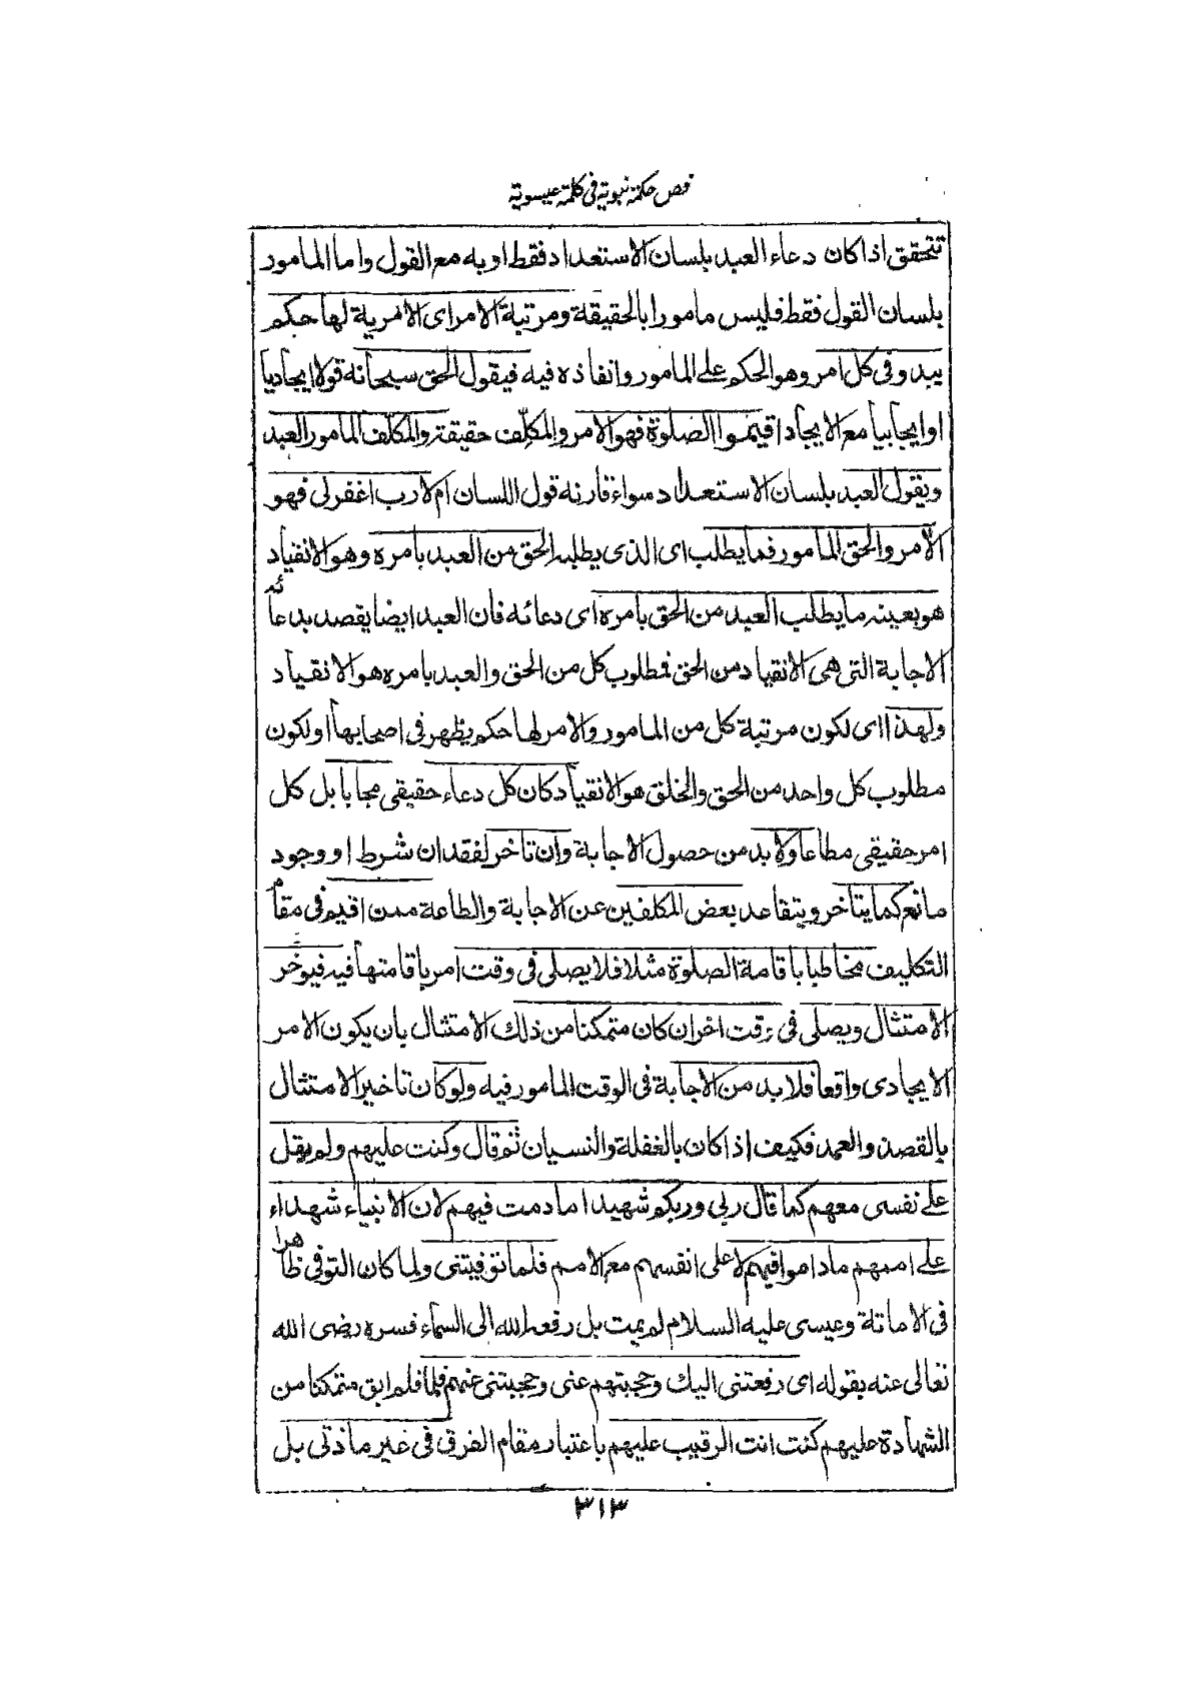 فص حكمة نبوية فى كلمة عيسوية
تتحقق اذا كان دعاء العبد بلسان الاستعداد فقط او به مع القول واما المامور
بلسان القول فقط فليس مامورا بالحقيقة ومرتبة الامر اى الامرية لها حكم
يبدو فى كل امر وهو الحكم على المامور وانفاذه فيه فيقول الحق سبحانه قولا ايجاديا
او ايجابيا مع الايجاد اقيموا الصلوة فهو الامر والمكلِّف حقيقة والمكلَّف المامور العبد
ويقول العبد بلسان الاستعداد سواء قارنه قول اللسان ام لا رب اغفر لى فهو
الآمر والحق المامور فما يطلب اى الذى يطلبه الحق من العبد بامره وهو الانقياد
هو بعينه ما يطلب العبد من الحق بامره اى دعائه فان العبد ايضا يقصد بدعائه
الاجابة التى هى الانقياد من الحق فمطلوب كل من الحق والعبد بامره هو الانقياد
ولهذا اى لكون مرتبة كل من المامور والامر لها حكم يظهر فى اصحابها او لكون
مطلوب كل واحد من الحق والخلق هو الانقياد كان كل دعاء حقيقى مجابا بل كل
امر حقيقى مطاعا ولا بد من حصول الاجابة وان تاخر لفقدان شرط او وجود
مانع كما يتاخر ويتقاعد بعض المكلفين عن الاجابة والطاعة ممن اقيم فى مقام
التكليف مخاطبا باقامة الصلوة مثلا فلا يصلى فى وقت امر باقامتها فيه فيؤخر
الامتثال ويصلى فى وقت اخر ان كان متمكنا من ذلك الامتثال بان يكون الامر
الايجادى واقعا فلا بد من الاجابة فى الوقت المامور فيه ولو كان تاخير الامتثال
بالقصد والعمد فكيف اذا كان بالغفلة والنسيان ثم قال وكنت عليهم ولم يقل
على نفسى معهم كما قال ربى وربكم شهيدا ما دمت فيهم لان الانبياء شهداء
على اممهم ما داموا فيهم لا على انفسهم مع الامم فلما توفيتنى ولما كان التوفى ظاهرا
فى الاماتة وعيسى عليه السلام لم يمت بل رفعه الله الى السماء فسره رضى الله
تعالى عنه بقوله اى رفعتنى اليك وحجبتهم عنى وحجبتنى عنهم فلما فلم ابق متمكنا من
الشهادة عليهم كنت انت الرقيب عليهم باعتبار مقام الفرق فى غير مادتى بل
٣١٣